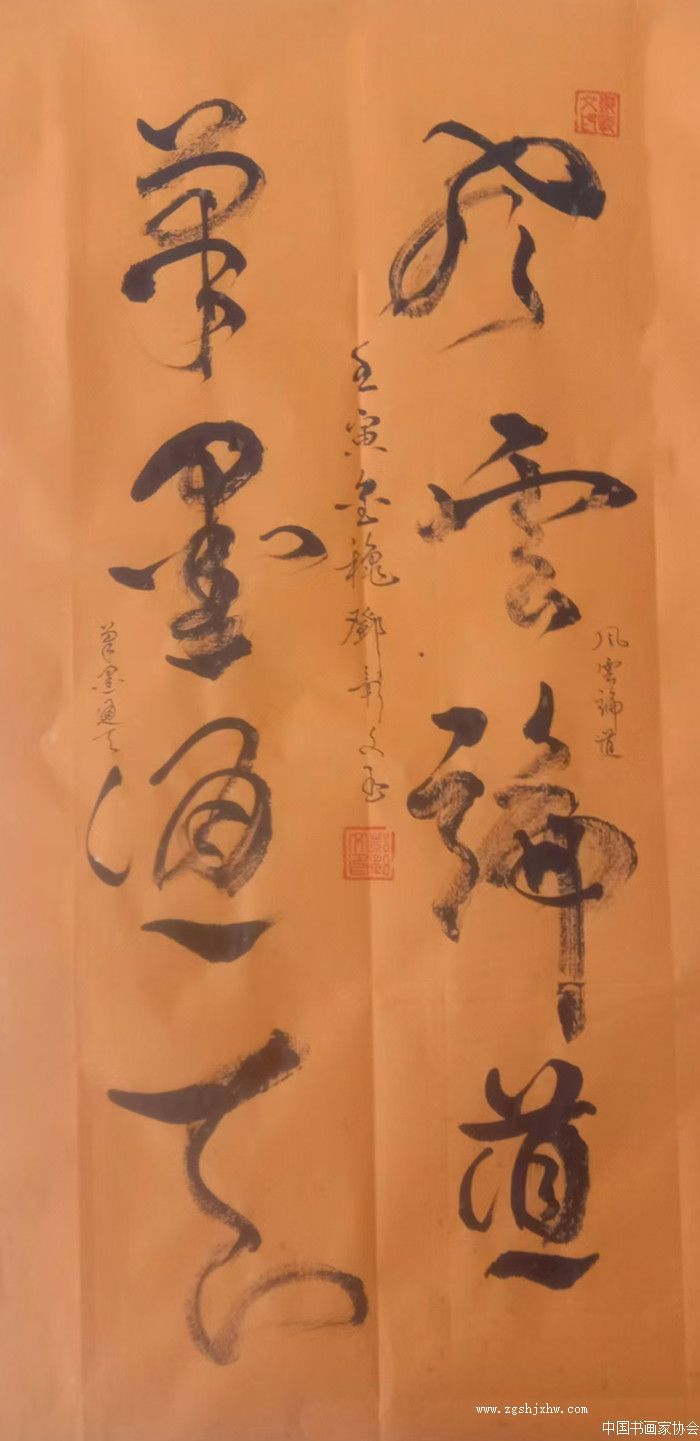 風雲論道
风雲論道
壬寅金穐鄧文书
筆墨通天
筆墨通天
www.zgshjxhw.com
中国书画家协会